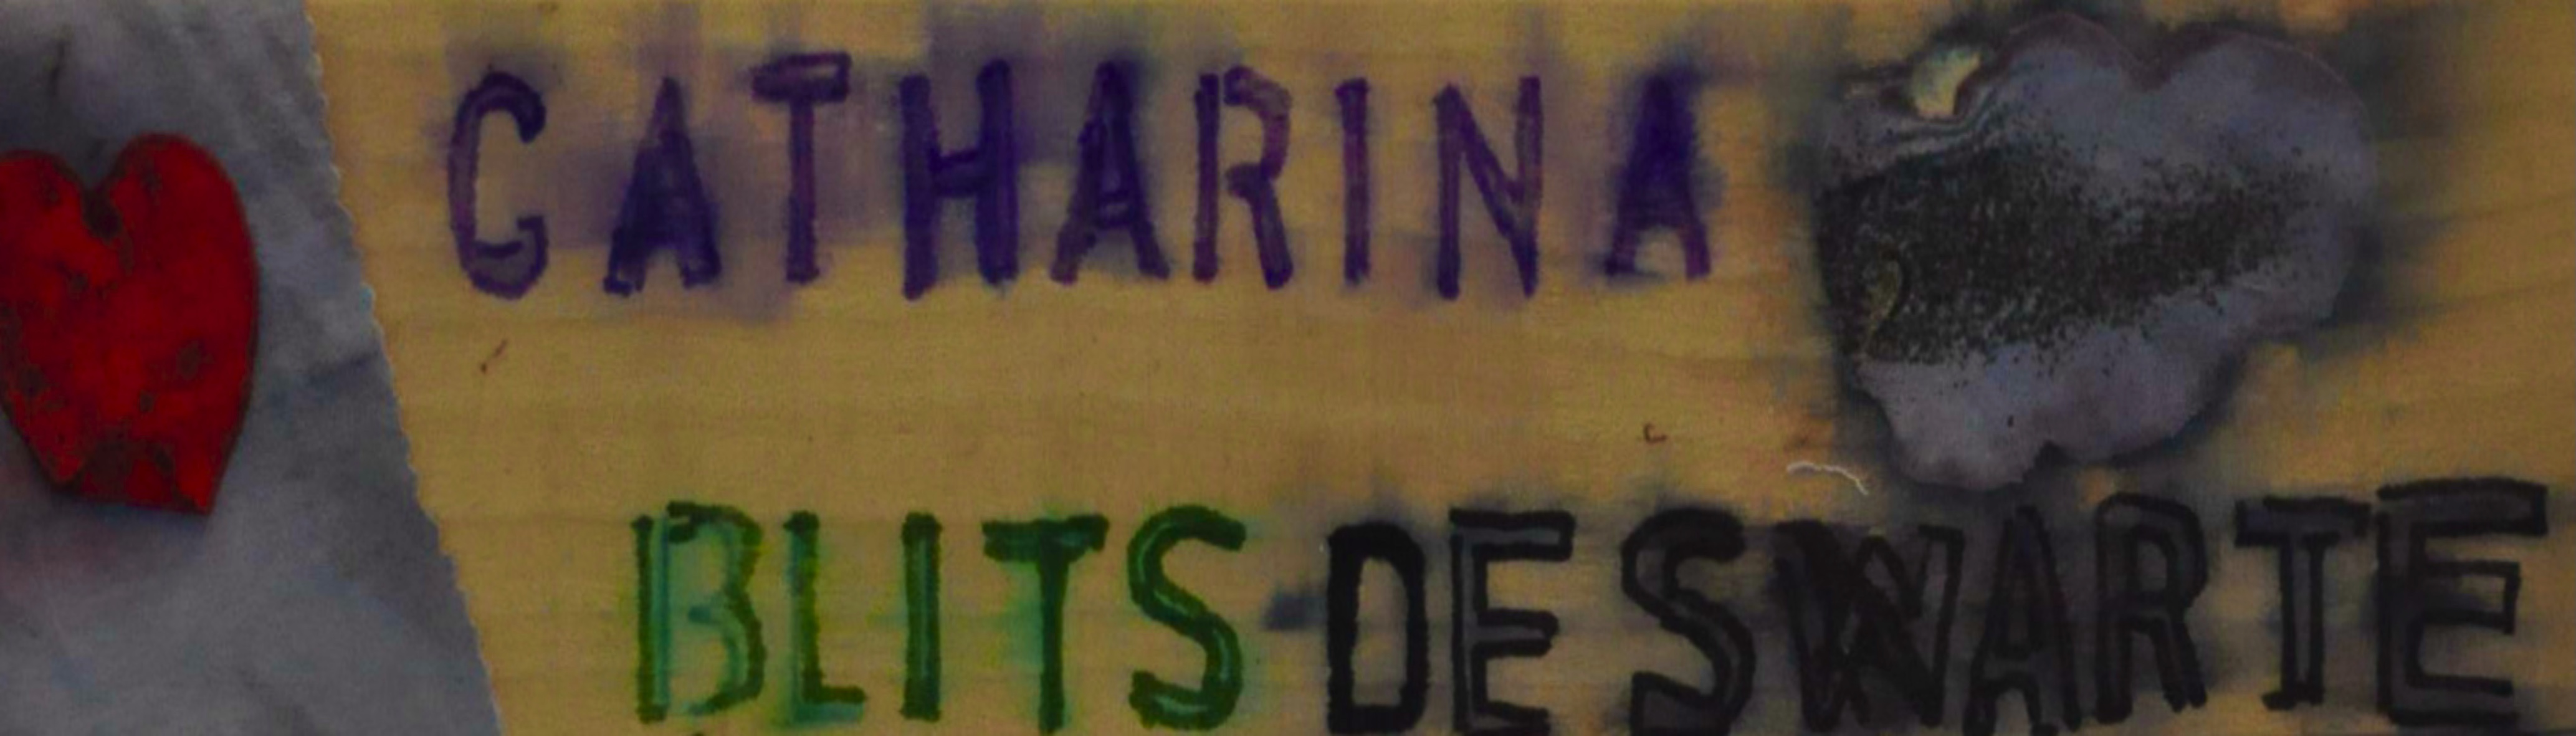 CATHARINA
BLITS DE SWARTE